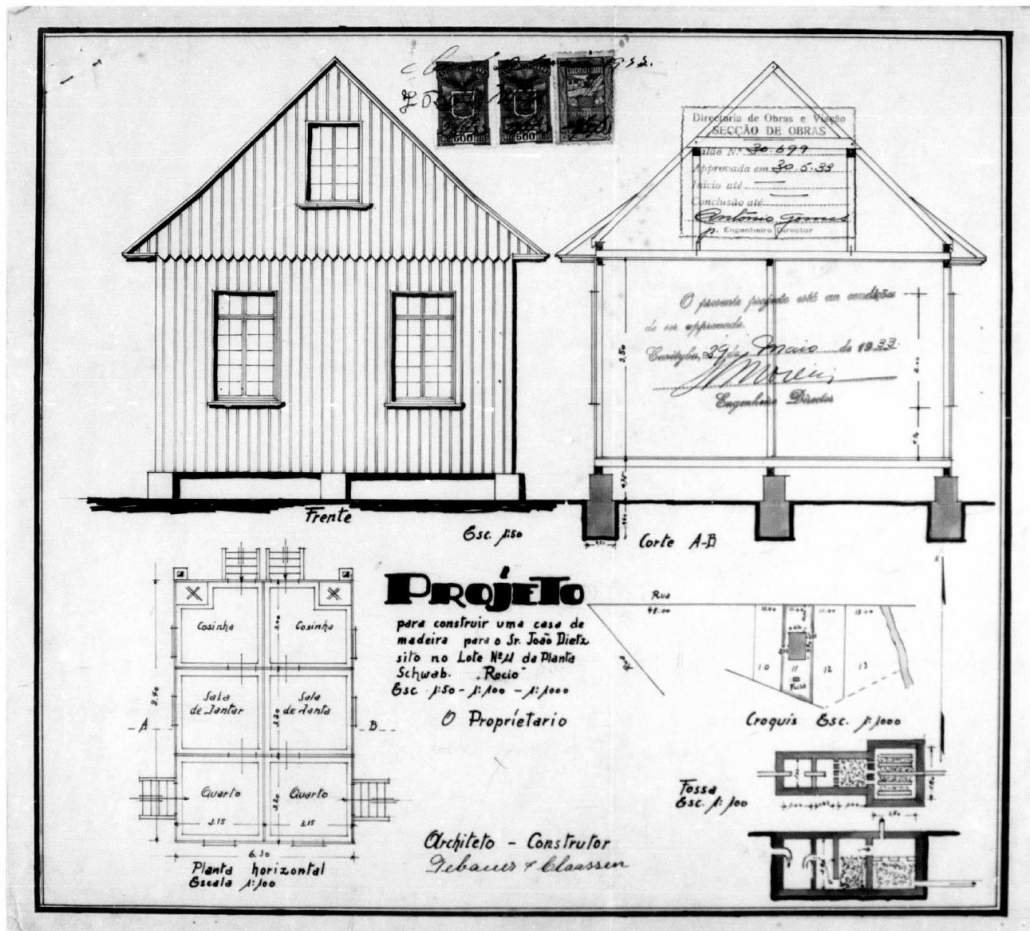 Directoria de Obras e Viação
SECÇÃO DE OBRAS
Nº 30.699
Approvada em 30-5-33
Inicio até
Conclusão até
Antônio Gomes
p. Engenheiro Director
600
600
O presente projeto está em condições
de ser approvado.
Curityba, 29 de Maio de 1933.
Engenheiro Director
3,50
Frente
Esc. 1:50
Corte A-B
PROJÉTO
para construir uma casa de
madeira para o Sr. João Dietz
sito no Lote Nº 11 da Planta
Schwab. "Rocio"
Esc. 1:50 - 1:100 - 1:1000
O Proprietario
Architeto - Construtor
Cosinha
Cosinha
Sala
de Jantar
Sala
de Janta
A
B
Quarto
Quarto
3.20
3.20
3.15
3.15
6.30
Planta horizontal
Escala 1:100
Rua
48.00
Rua
10
11
12
13
Croquis Esc. 1:1000
Fossa
Esc. 1:100